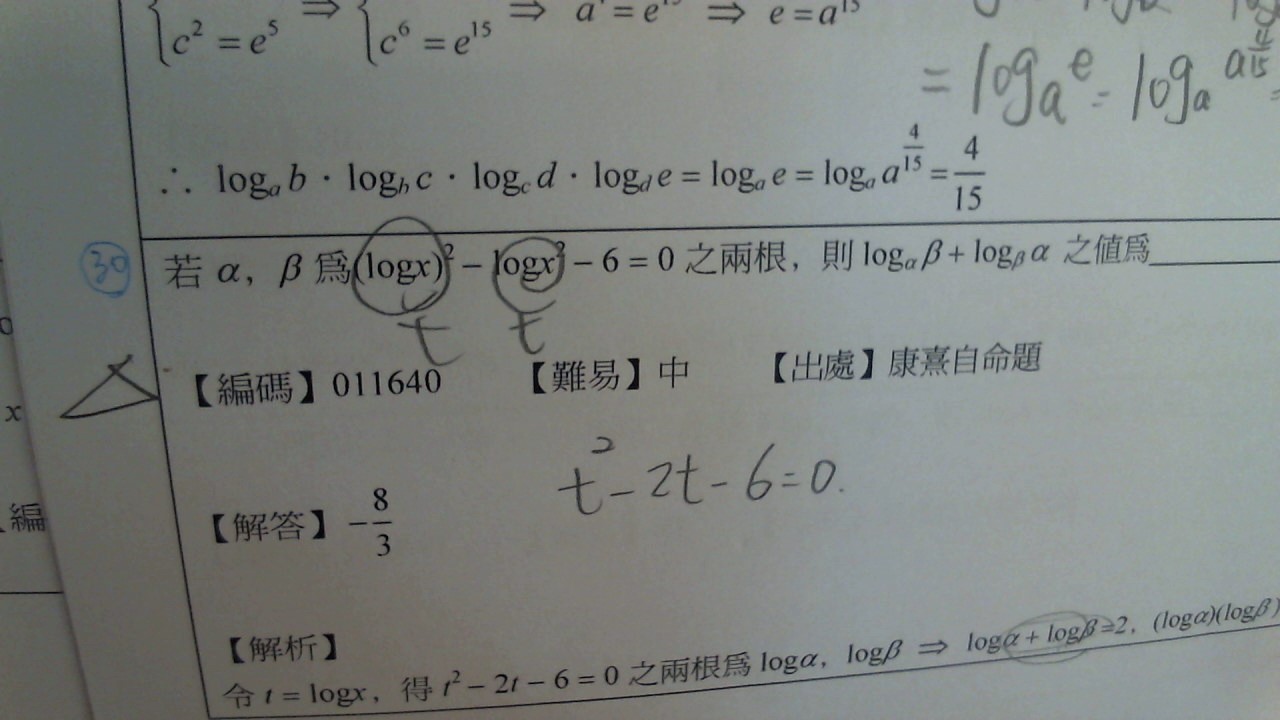 c² = e⁵ ⇒ c⁶ = e¹⁵ ⇒ ⇒ e = a
= logₐe = logₐ a
∴ logₐb · log_b c · log_c d · log_d e = logₐe = logₐa^(4/15) = 4/15
30 若 α, β 為 (logx)² − logx² − 6 = 0 之兩根, 則 log_α β + log_β α 之值為
t t
【編碼】011640 【難易】中 【出處】康熹自命題
t² − 2t − 6 = 0.
x
編
【解答】 −8/3
【解析】
令 t = logx, 得 t² − 2t − 6 = 0 之兩根為 logα, logβ ⇒ logα + logβ = 2, (logα)(logβ)